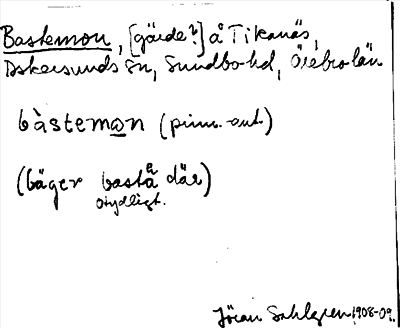 Bastemon, [gärde?] å Tikanäs,
Askersunds sn, Sundbo hd, Örebro län
bàstemon (pinn. ant.)
(läger bastå där)
å
otydligt.
Jöran Sahlgren 1908-09.